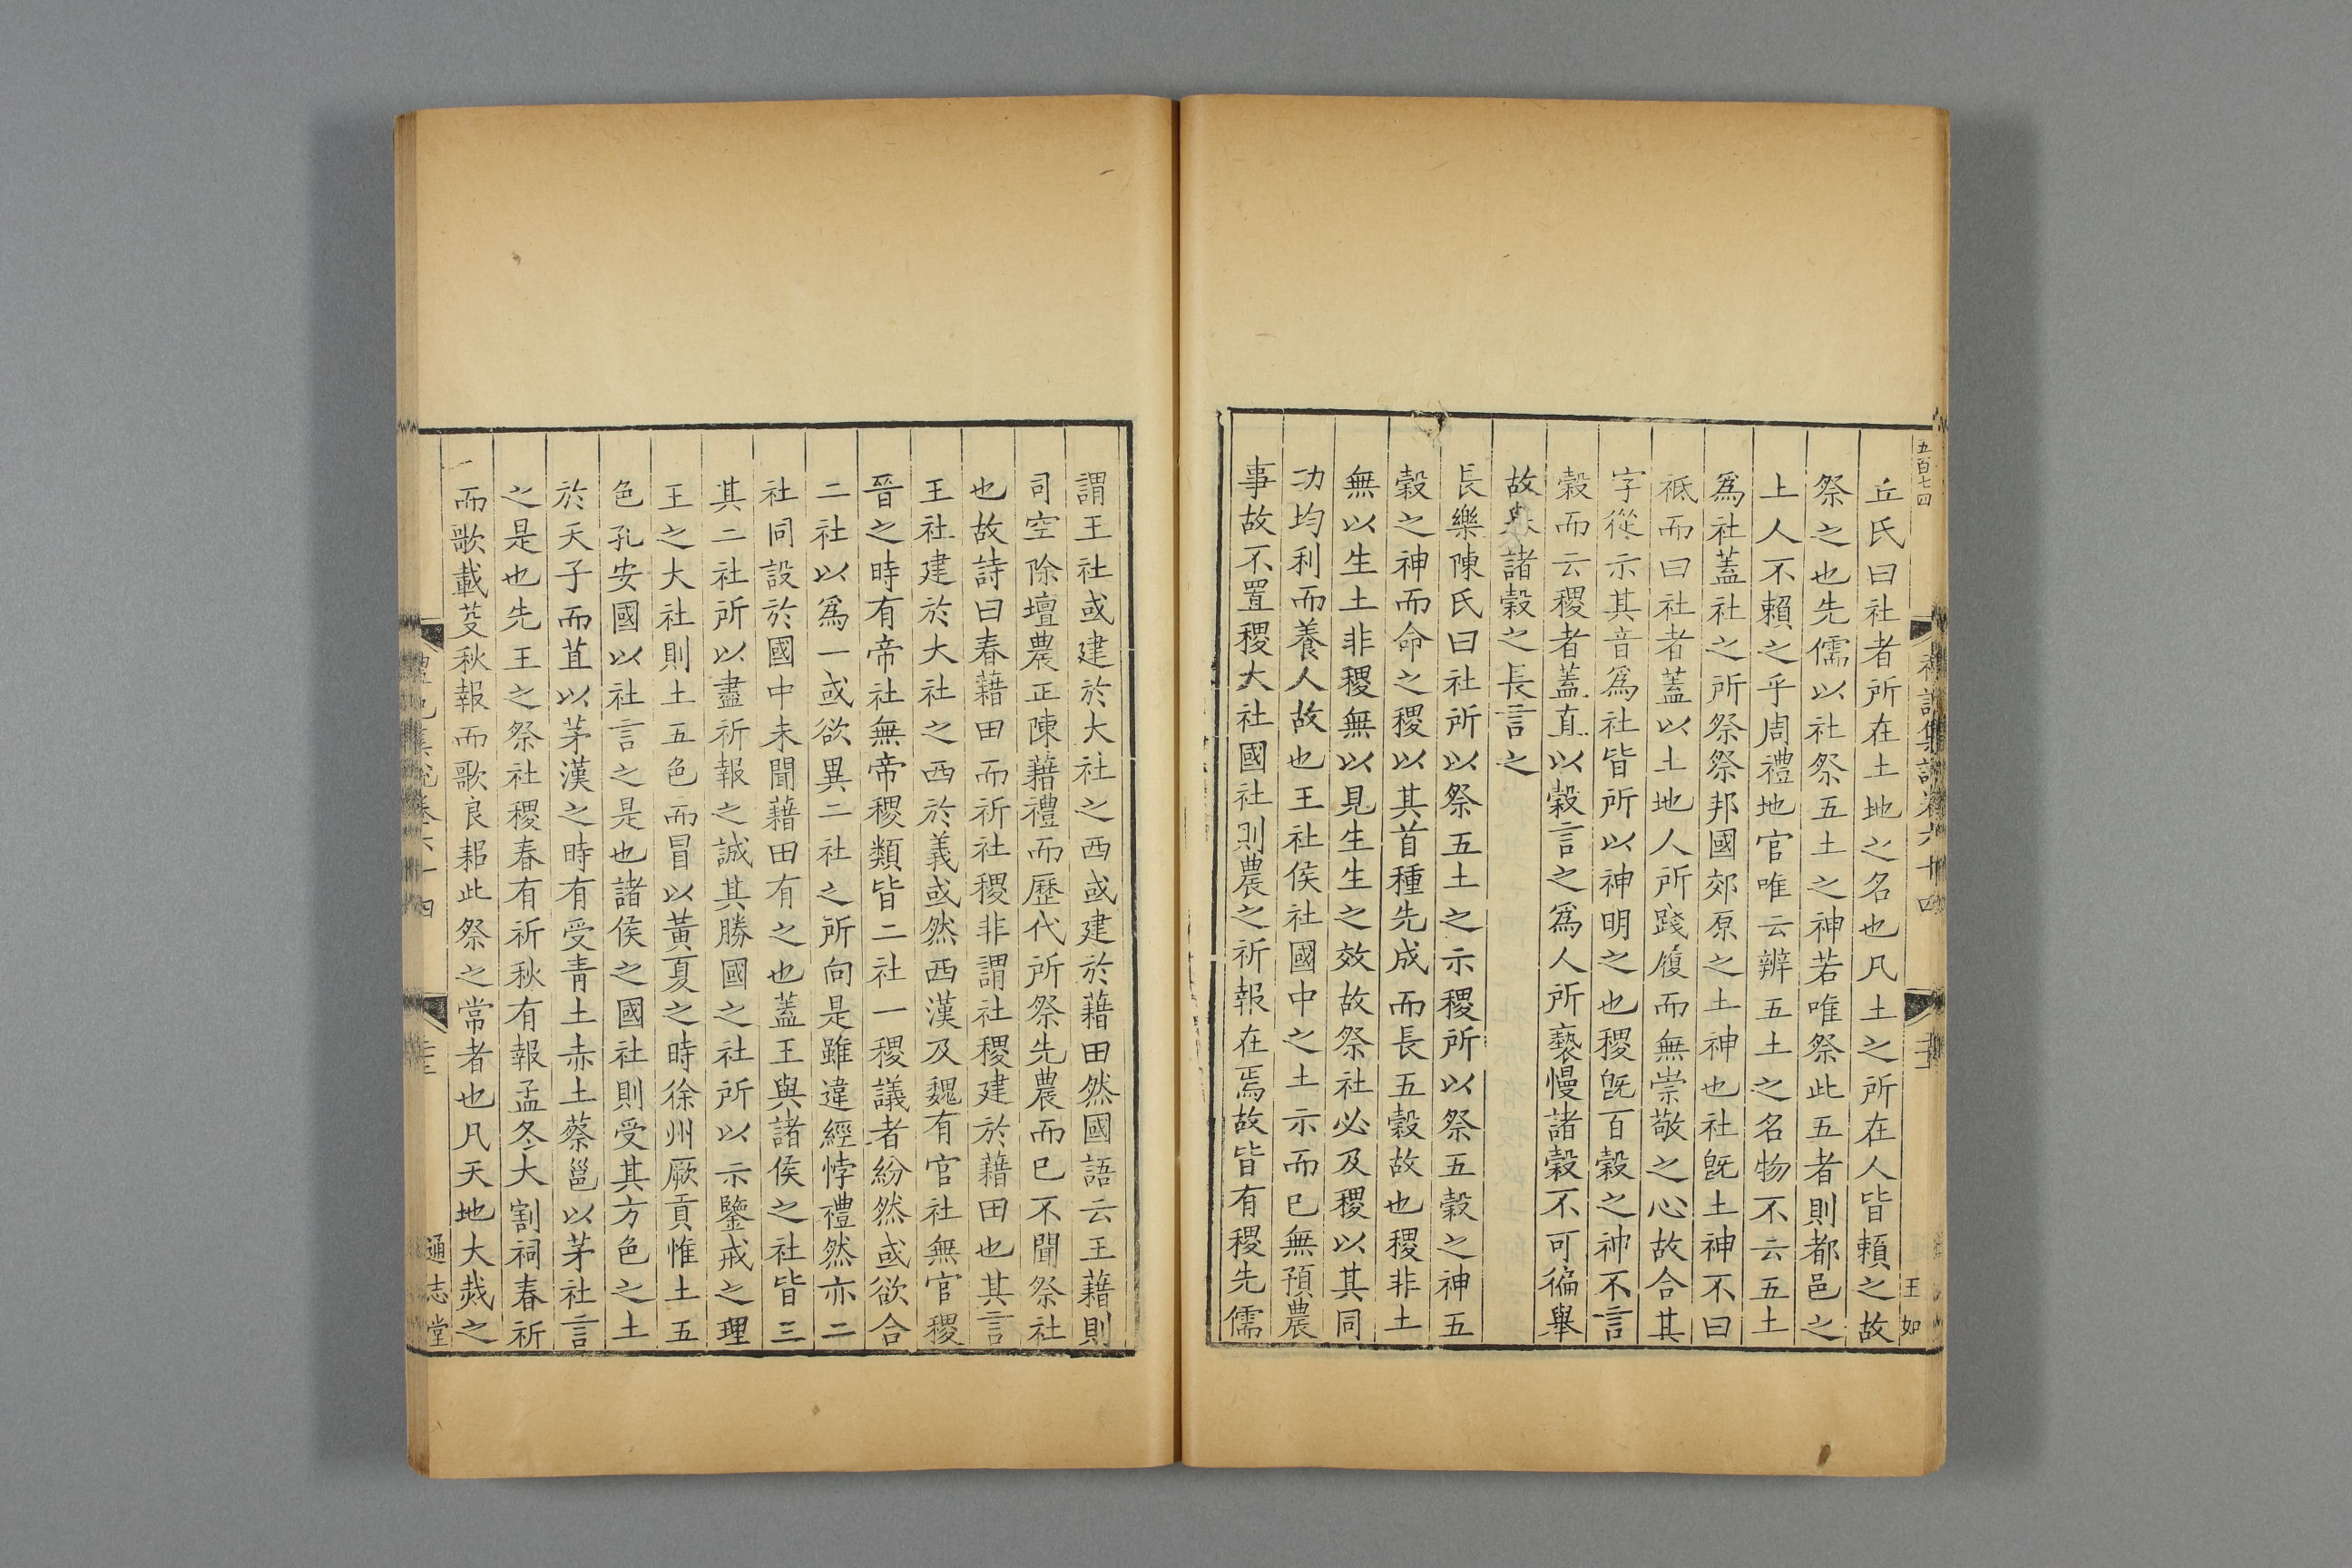 五百七四
禮記集說卷六十四
王如
丘氏曰社者所在土地之名也凡土之所在人皆賴之故
祭之也先儒以社祭五土之神若唯祭此五者則都邑之
上人不賴之乎周禮地官唯云辨五土之名物不云五土
爲社蓋社之所祭祭邦國郊原之土神也社旣土神不曰
祗而曰社者蓋以土地人所踐履而無崇敬之心故合其
字從示其音爲社皆所以神明之也稷旣百穀之神不言
穀而云稷者蓋直以穀言之爲人所褻慢諸穀不可徧舉
故諸穀之長言之
長樂陳氏曰社所以祭五土之示稷所以祭五穀之神五
穀之神而命之稷以其首種先成而長五穀故也稷非土
無以生土非稷無以見生生之效故祭社必及稷以其同
功均利而養人故也王社侯社國中之土示而已無預農
事故不置稷大社國社則農之祈報在焉故皆有稷先儒
謂王社或建於大社之西或建於藉田然國語云王藉則
司空除壇農正陳藉禮而歷代所祭先農而已不聞祭社
也故詩曰春藉田而祈社稷非謂社稷建於藉田也其言
王社建於大社之西於義或然西漢及魏有官社無官稷
晉之時有帝社無帝稷類皆二社一稷議者紛然或欲合
二社以爲一或欲異二社之所向是雖違經悖禮然亦二
社同設於國中未聞藉田有之也蓋王與諸侯之社皆三
其二社所以盡祈報之誠其勝國之社所以示鑒戒之理
王之大社則土五色而冒以黃夏之時徐州厥貢惟土五
色孔安國以社言之是也諸侯之國社則受其方色之土
於天子而苴以茅漢之時有受青土赤土蔡邕以茅社言
之是也先王之祭社稷春有祈秋有報孟冬大割祠春祈
而歌載芟秋報而歌良耜此祭之常者也凡天地大烖之
禮記集說卷六十四
通志堂